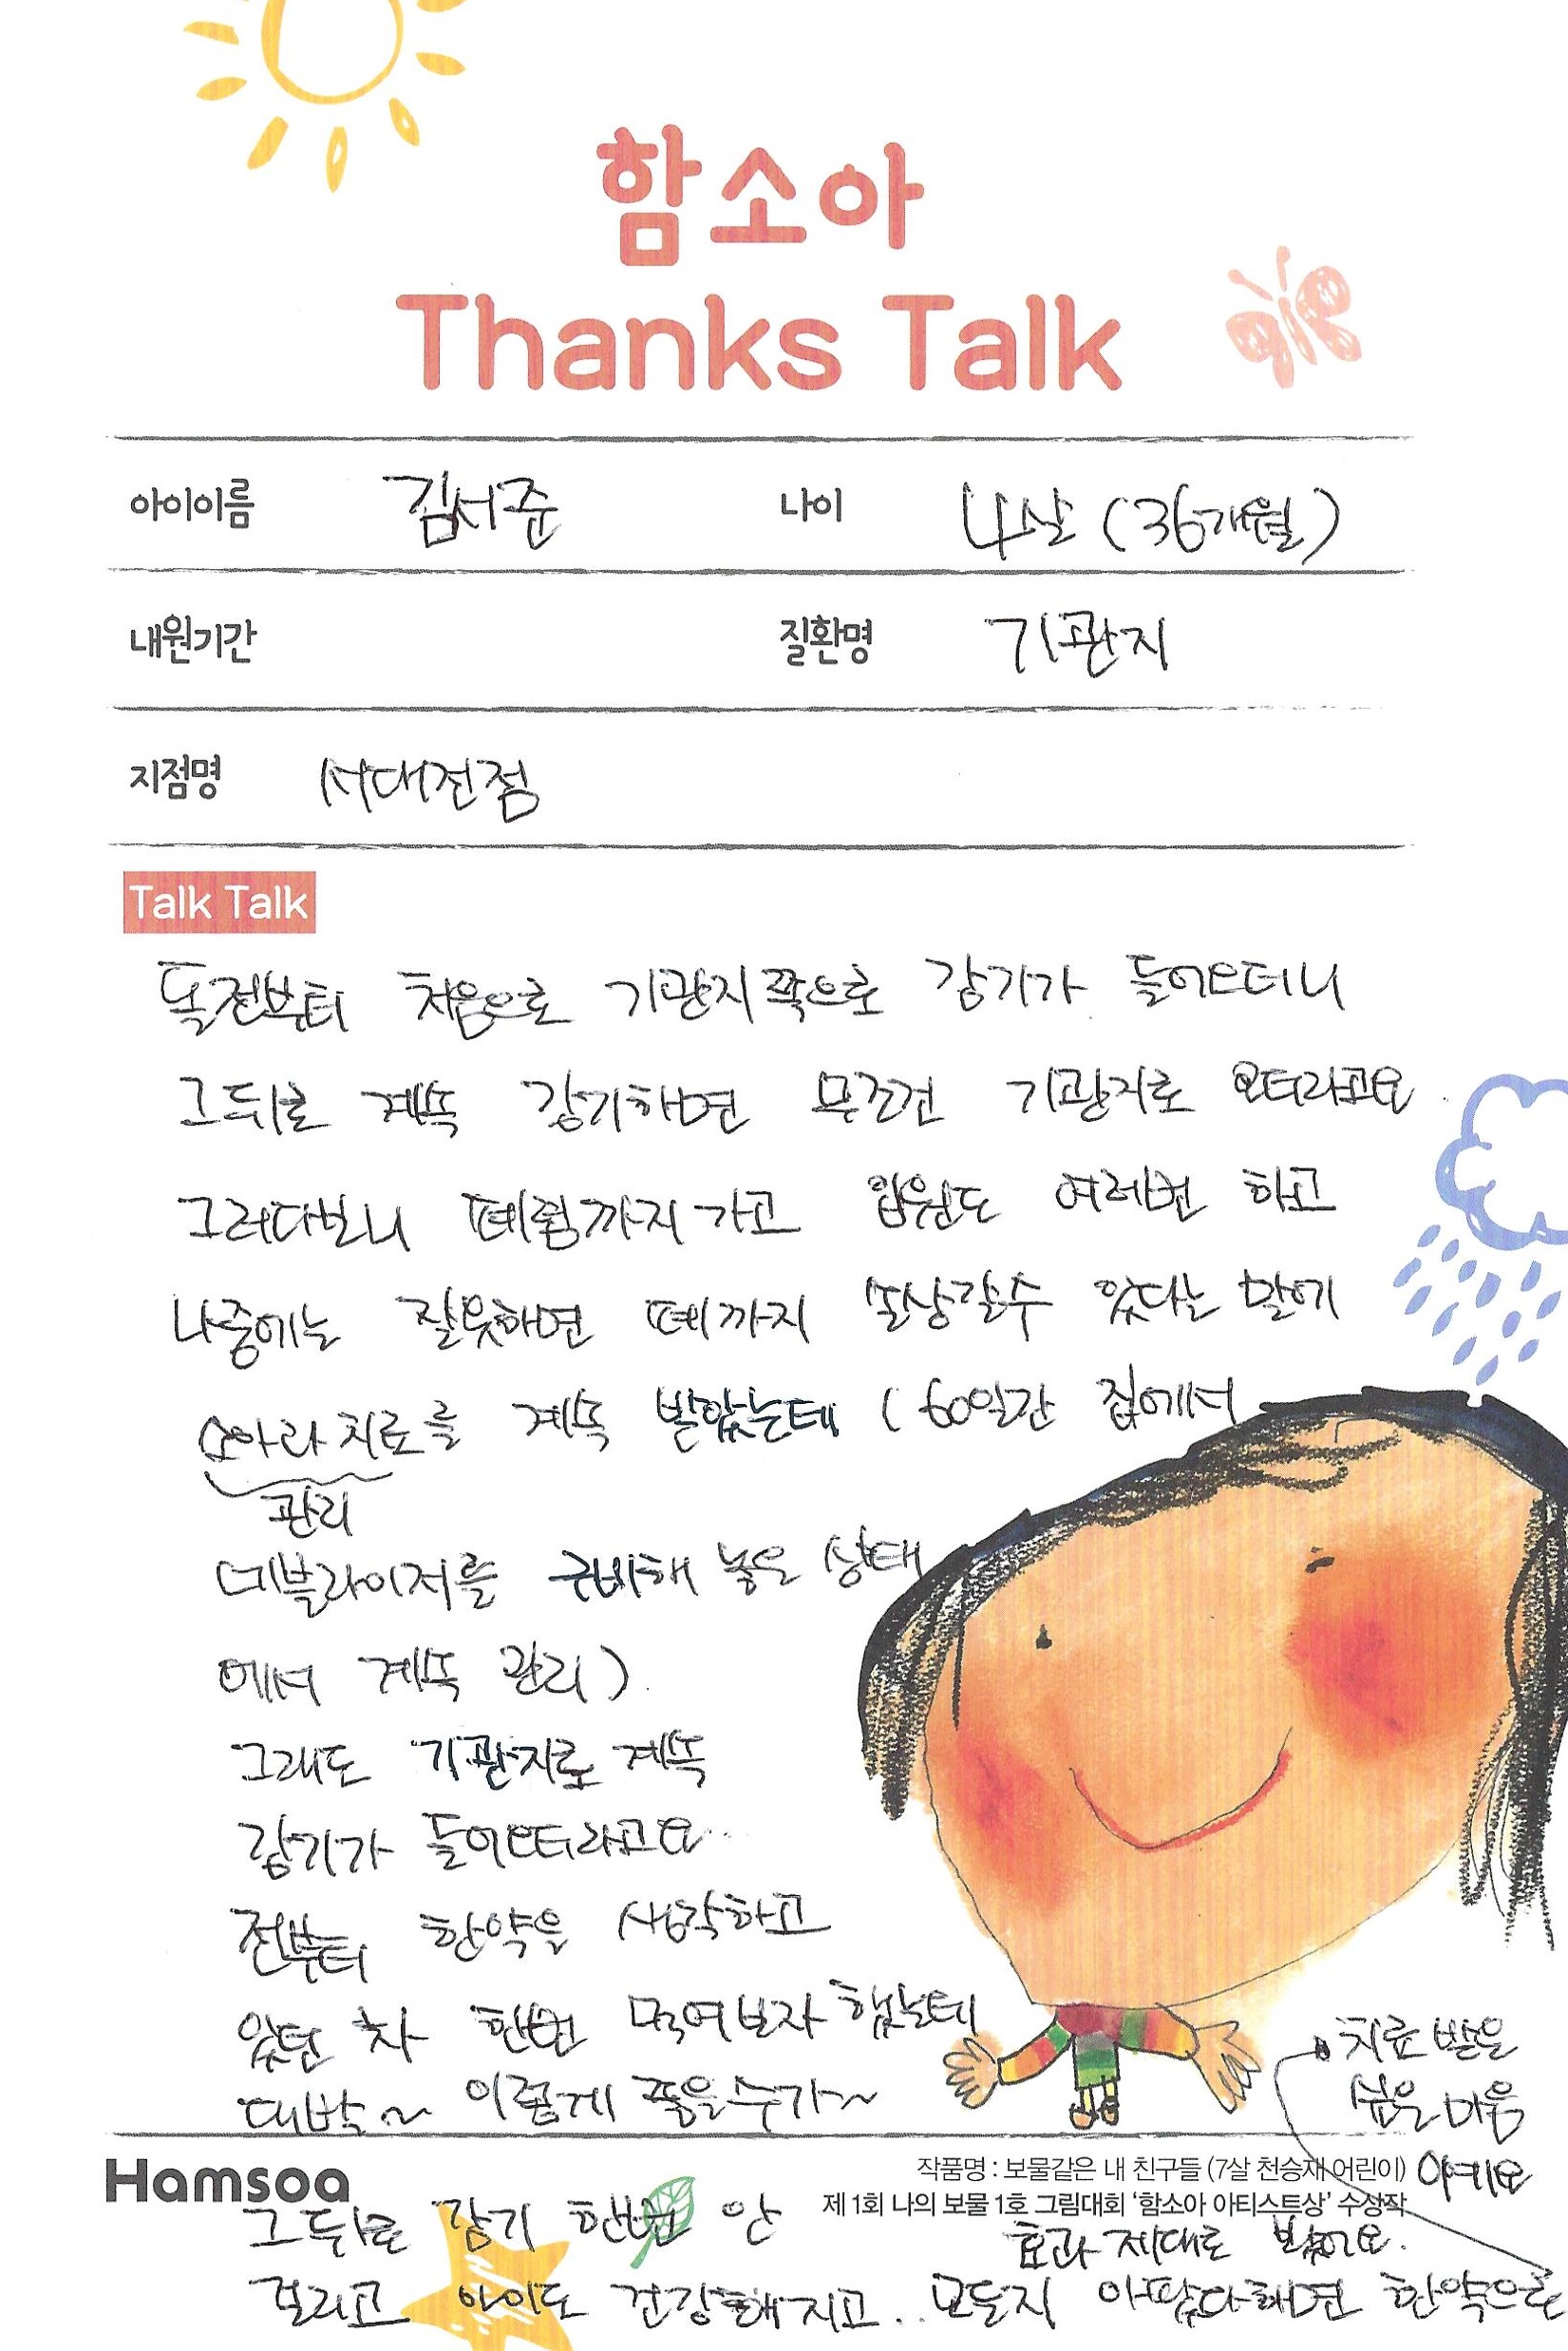 함소아
Thanks Talk
아이이름 김서준 나이 4살 (36개월)
내원기간 질환명 기관지
지점명 서대전점
Talk Talk
돌전부터 처음으로 기관지쪽으로 감기가 들어오더니
그뒤로 계속 감기하면 무조건 기관지로 오더라고요
그러다보니 폐렴까지 가고 입원도 여레번 하고
나중에는 잘못하면 폐까지 손상갈수 있다는 말에
소아과 치료를 계속 받았는데 (60일간 집에서
관리
네블라이저를 구비해 놓은 상태
에서 계속 관리)
그래도 기관지로 계속
감기가 들어오더라고요..
전부터 한약을 생각하고
있던 차 한번 먹여보자 했는데
대박~ 이렇게 좋을수가~
그뒤로 감기 한번 안
걸리고 아이도 건강해지고.. 모든지 아프다하면 한약으로
치료 받을
싶은 마음
이예요
효과 제대로 봤어요.
Hamsoa
작품명 : 보물같은 내 친구들 (7살 천승재 어린이)
제 1회 나의 보물 1호 그림대회 ‘함소아 아티스트상’ 수상작